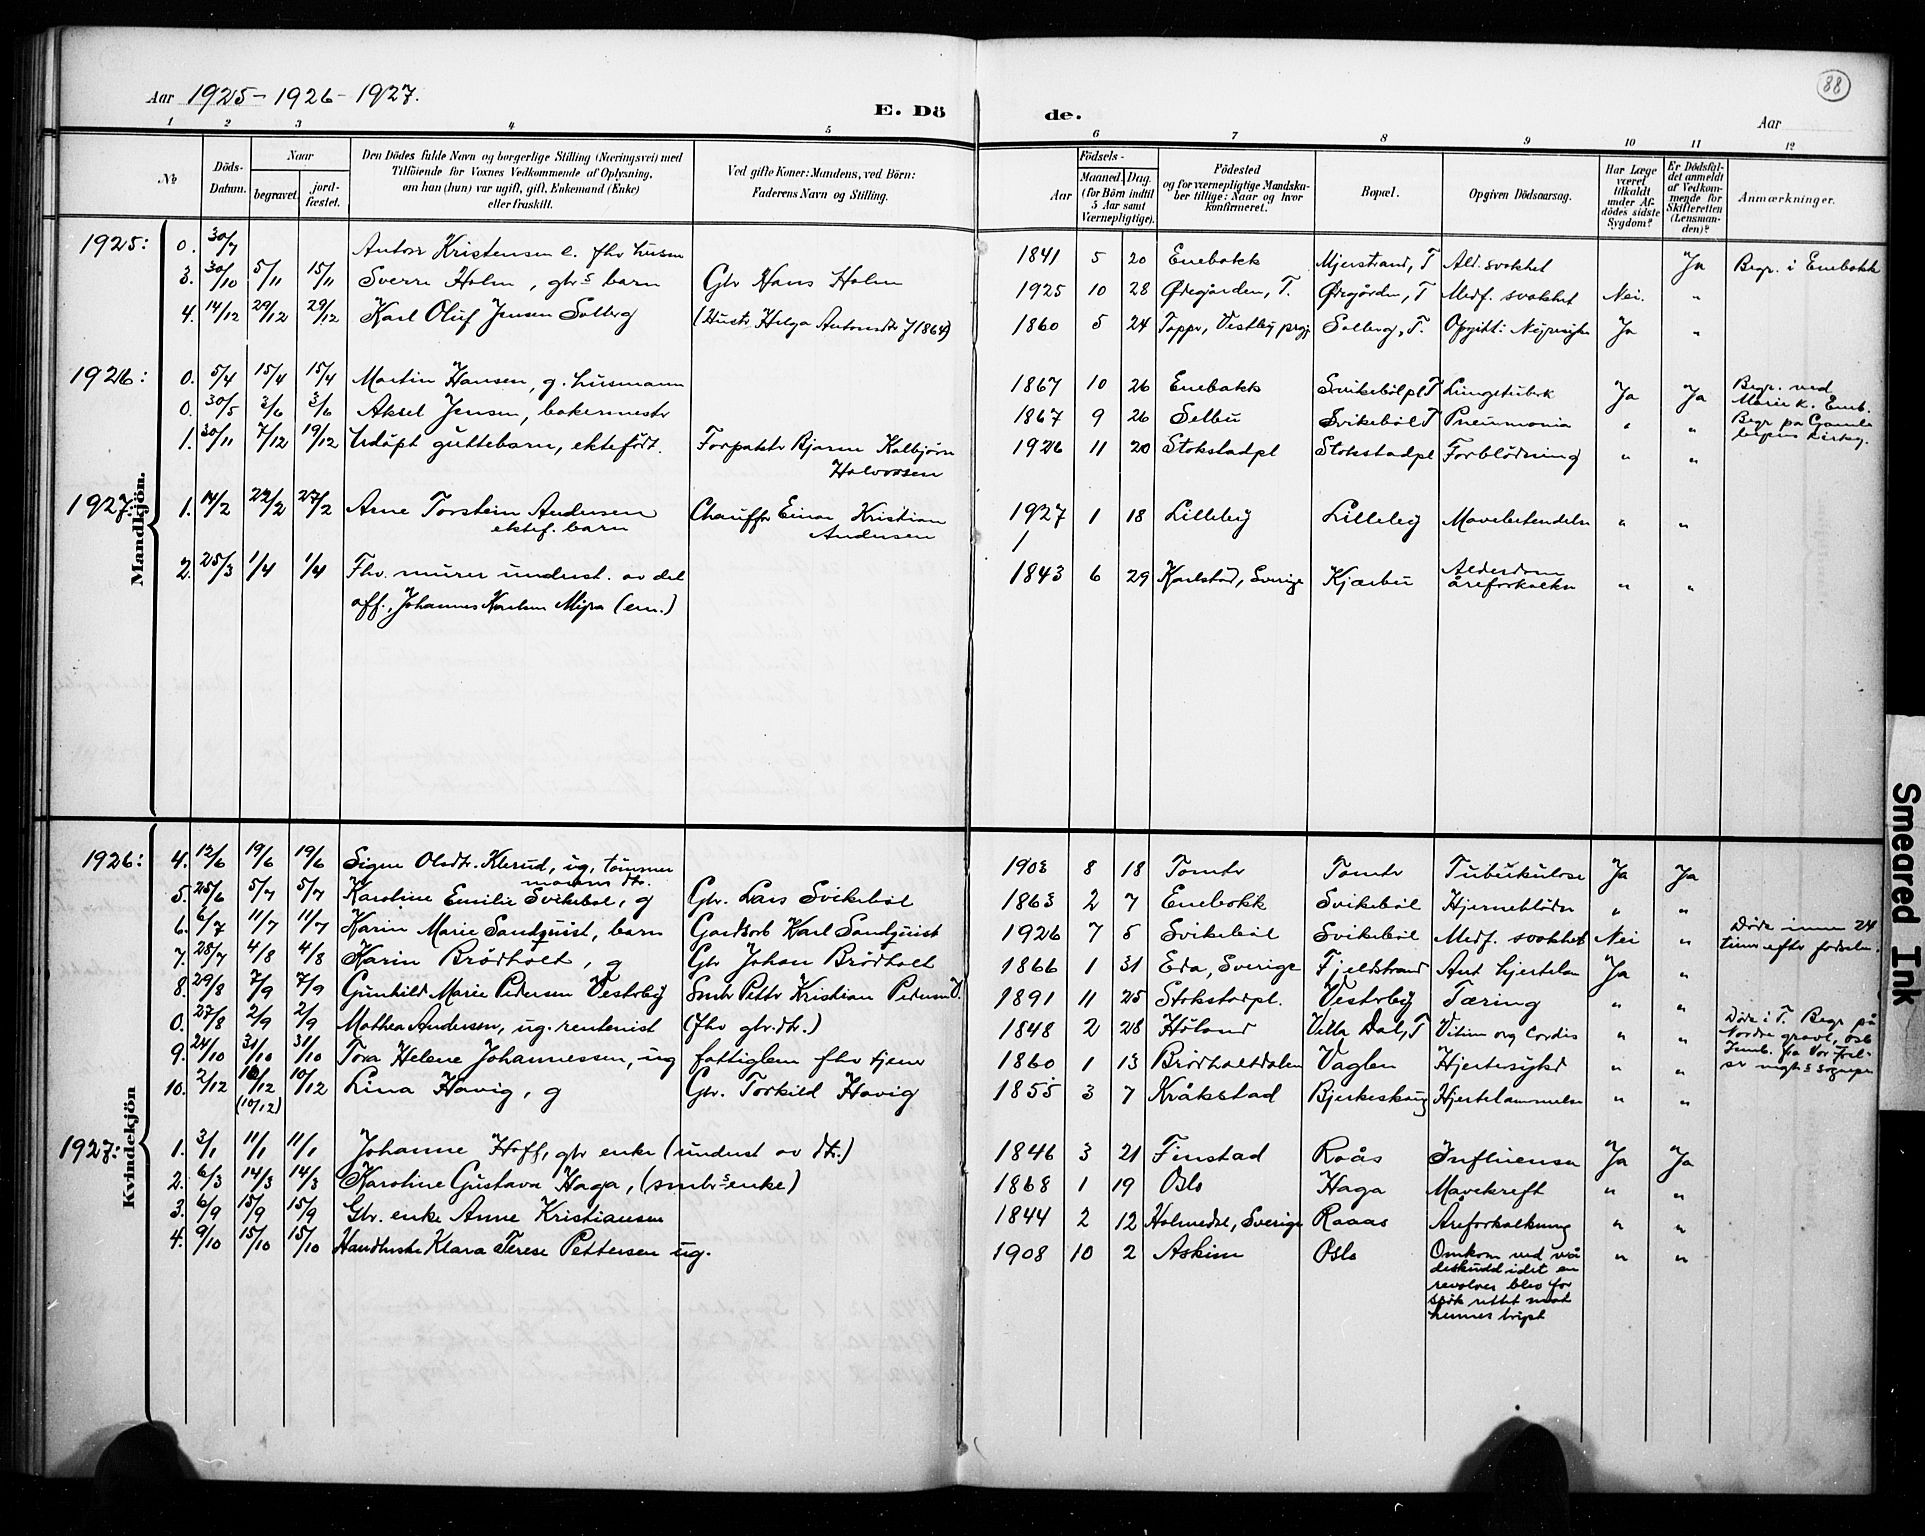 Aar 1925-1926-1927.
E. Dö
de.
88
Aar
1 2 3 4 5 6 7 8 9 10 11 12
No
Döds-Datum.
Naar
begravet.
jord-fæstet.
Den Dödes fulde Navn og borgerlige Stilling (Næringsvei) med
Tilföiende for Voxnes Vedkommende af Oplysning,
om han (hun) var ugift, gift, Enkemand (Enke)
eller fraskilt.
Ved gifte Koner: Mandens, ved Börn:
Faderens Navn og Stilling.
Aar
Födsels-
Maaned. Dag.
(for Börn indtil
5 Aar samt
Værnepligtige).
Födested
og for værnepligtige Mandska-
ber tillige: Naar og hvor
konfirmeret.
Bopæl.
Opgiven Dödsaarsag.
Har Læge
været
tilkaldt
under Af-
dödes sidste
Sygdom?
Er Dödsfal-
det anmeldt
af Vedkom-
mende for
Skifteretten
(Lensman-
den)?
Anmærkninger.
Mandkjön.
1925: 0. 30/7 Anton Kristensen e. fhv husm 1841 5 20 Enebakk Mjerstrand, T Ald. svakhet Ja Begr. i Enebakk
3. 30/10 5/11 15/11 Sverre Holm, gbrs barn Gbr Hans Holm 1925 10 28 Ødegården, T. Ødegården, T Medf. svakhet Nei. "
4. 14/12 29/12 29/12 Karl Oluf Jensen Solberg (Hustr Helga f 1864) 1860 5 24 Toppr, Vestby prgj Solberg, T. Ja "
1926: 0. 5/4 15/4 15/4 Martin Hansen, g. husmann 1867 10 26 Enebakk Svikebölpl T Lungetuberk Ja Ja Begr. ved
Mariek. Enb.
0. 30/5 3/6 3/6 Aksel Jensen, bakermestr 1867 9 26 Selbu Svikeböl T Pneumonia " " Begr på Gamle
1. 30/11 7/12 19/12 Udöpt guttebarn, ektefödt. Forpaktr Bjarne Kolbjörn 1926 11 20 Stokstadpl Stokstadpl Forblödning " "
Halvorsen
1927: 1. 14/2 22/2 27/2 Arne Torstein Andersen Chauffr Einar Kristian 1927 1 18 Lilleby Lilleby Mavebetendelse " "
ektef. barn Andersen
2. 25/3 1/4 1/4 Fhv. murer underst. av det 1843 6 29 Karlstad, Sverige Kjærbu Alderdom " "
åreforkalkn
off., Johannes Karlsen Migra (em.)
Kvindekjön
1926: 4. 12/6 19/6 19/6 Signe Olsdtr. Klerud, ug, tömmer 1903 8 18 Tomtr Tomtr Tuberkulose Ja Ja
manns dtr.
5. 25/6 5/7 5/7 Karoline Emilie Svikeböl, g Gbr. Lars Svikeböl 1863 2 7 Enebakk Svikeböl Hjerneblödn " "
6. 6/7 11/7 11/7 Karin Marie Sandquist, barn Gardsarb Karl Sandquist 1926 7 5 Svikeböl Svikeböl Medf. svakhet Nei " Döde innen 24
timer eftr födselen.
7. 28/7 4/8 4/8 Karin Brödholt, g Gbr Johan Brödholt 1866 1 31 Eda, Sverige Fjeldstrand Ant hjertelam Ja "
8. 29/8 7/9 7/9 Gunhild Marie Pedersen Vestby Smbr Pettr Kristian Pedersen V. 1891 11 25 Stokstadpl. Vestreby Tæring " "
0. 27/8 2/9 2/9 Mathea Andersen, ug. rentenist (fhv gbr. dtr.) 1848 2 28 Höland Villa Dal, T Vitium org Cordis " " Döde i T. Begr på
Nordre gravl, Oslo
9. 24/10 31/10 31/10 Tora Helene Johannessen, ug fattiglem fhv tjener 1860 1 13 Brödholtdalen Vaglen Hjertesykd " "
10. 2/12 10/12 10/12 Lina Havig, g Gbr. Torkild Havig 1855 3 7 Kråkstad Bjerkeskaug Hjertelammelse " "
(10/12)
1927: 1. 3/1 11/1 11/1 Johanne Hoff, gbr enke (underst av dtr.) 1846 3 21 Finstad Raås Influensa Ja Ja
2. 6/3 14/3 14/3 Karoline Gustava Haga, (smbrs enke) 1868 1 19 Oslo Haga Mavekreft " "
3. 6/9 15/9 15/9 Gbr. enke Anne Kristiansen 1844 2 12 Holmedal, Sverige Raaas Åreforkalkning " "
4. 9/10 15/10 15/10 Klara Terese Pettersen ug. 1908 10 2 Askim Oslo Omkom ved vå " "
deskudd idet en
revolver blev for
spök rettet mot
hennes bryst
Smeared Ink